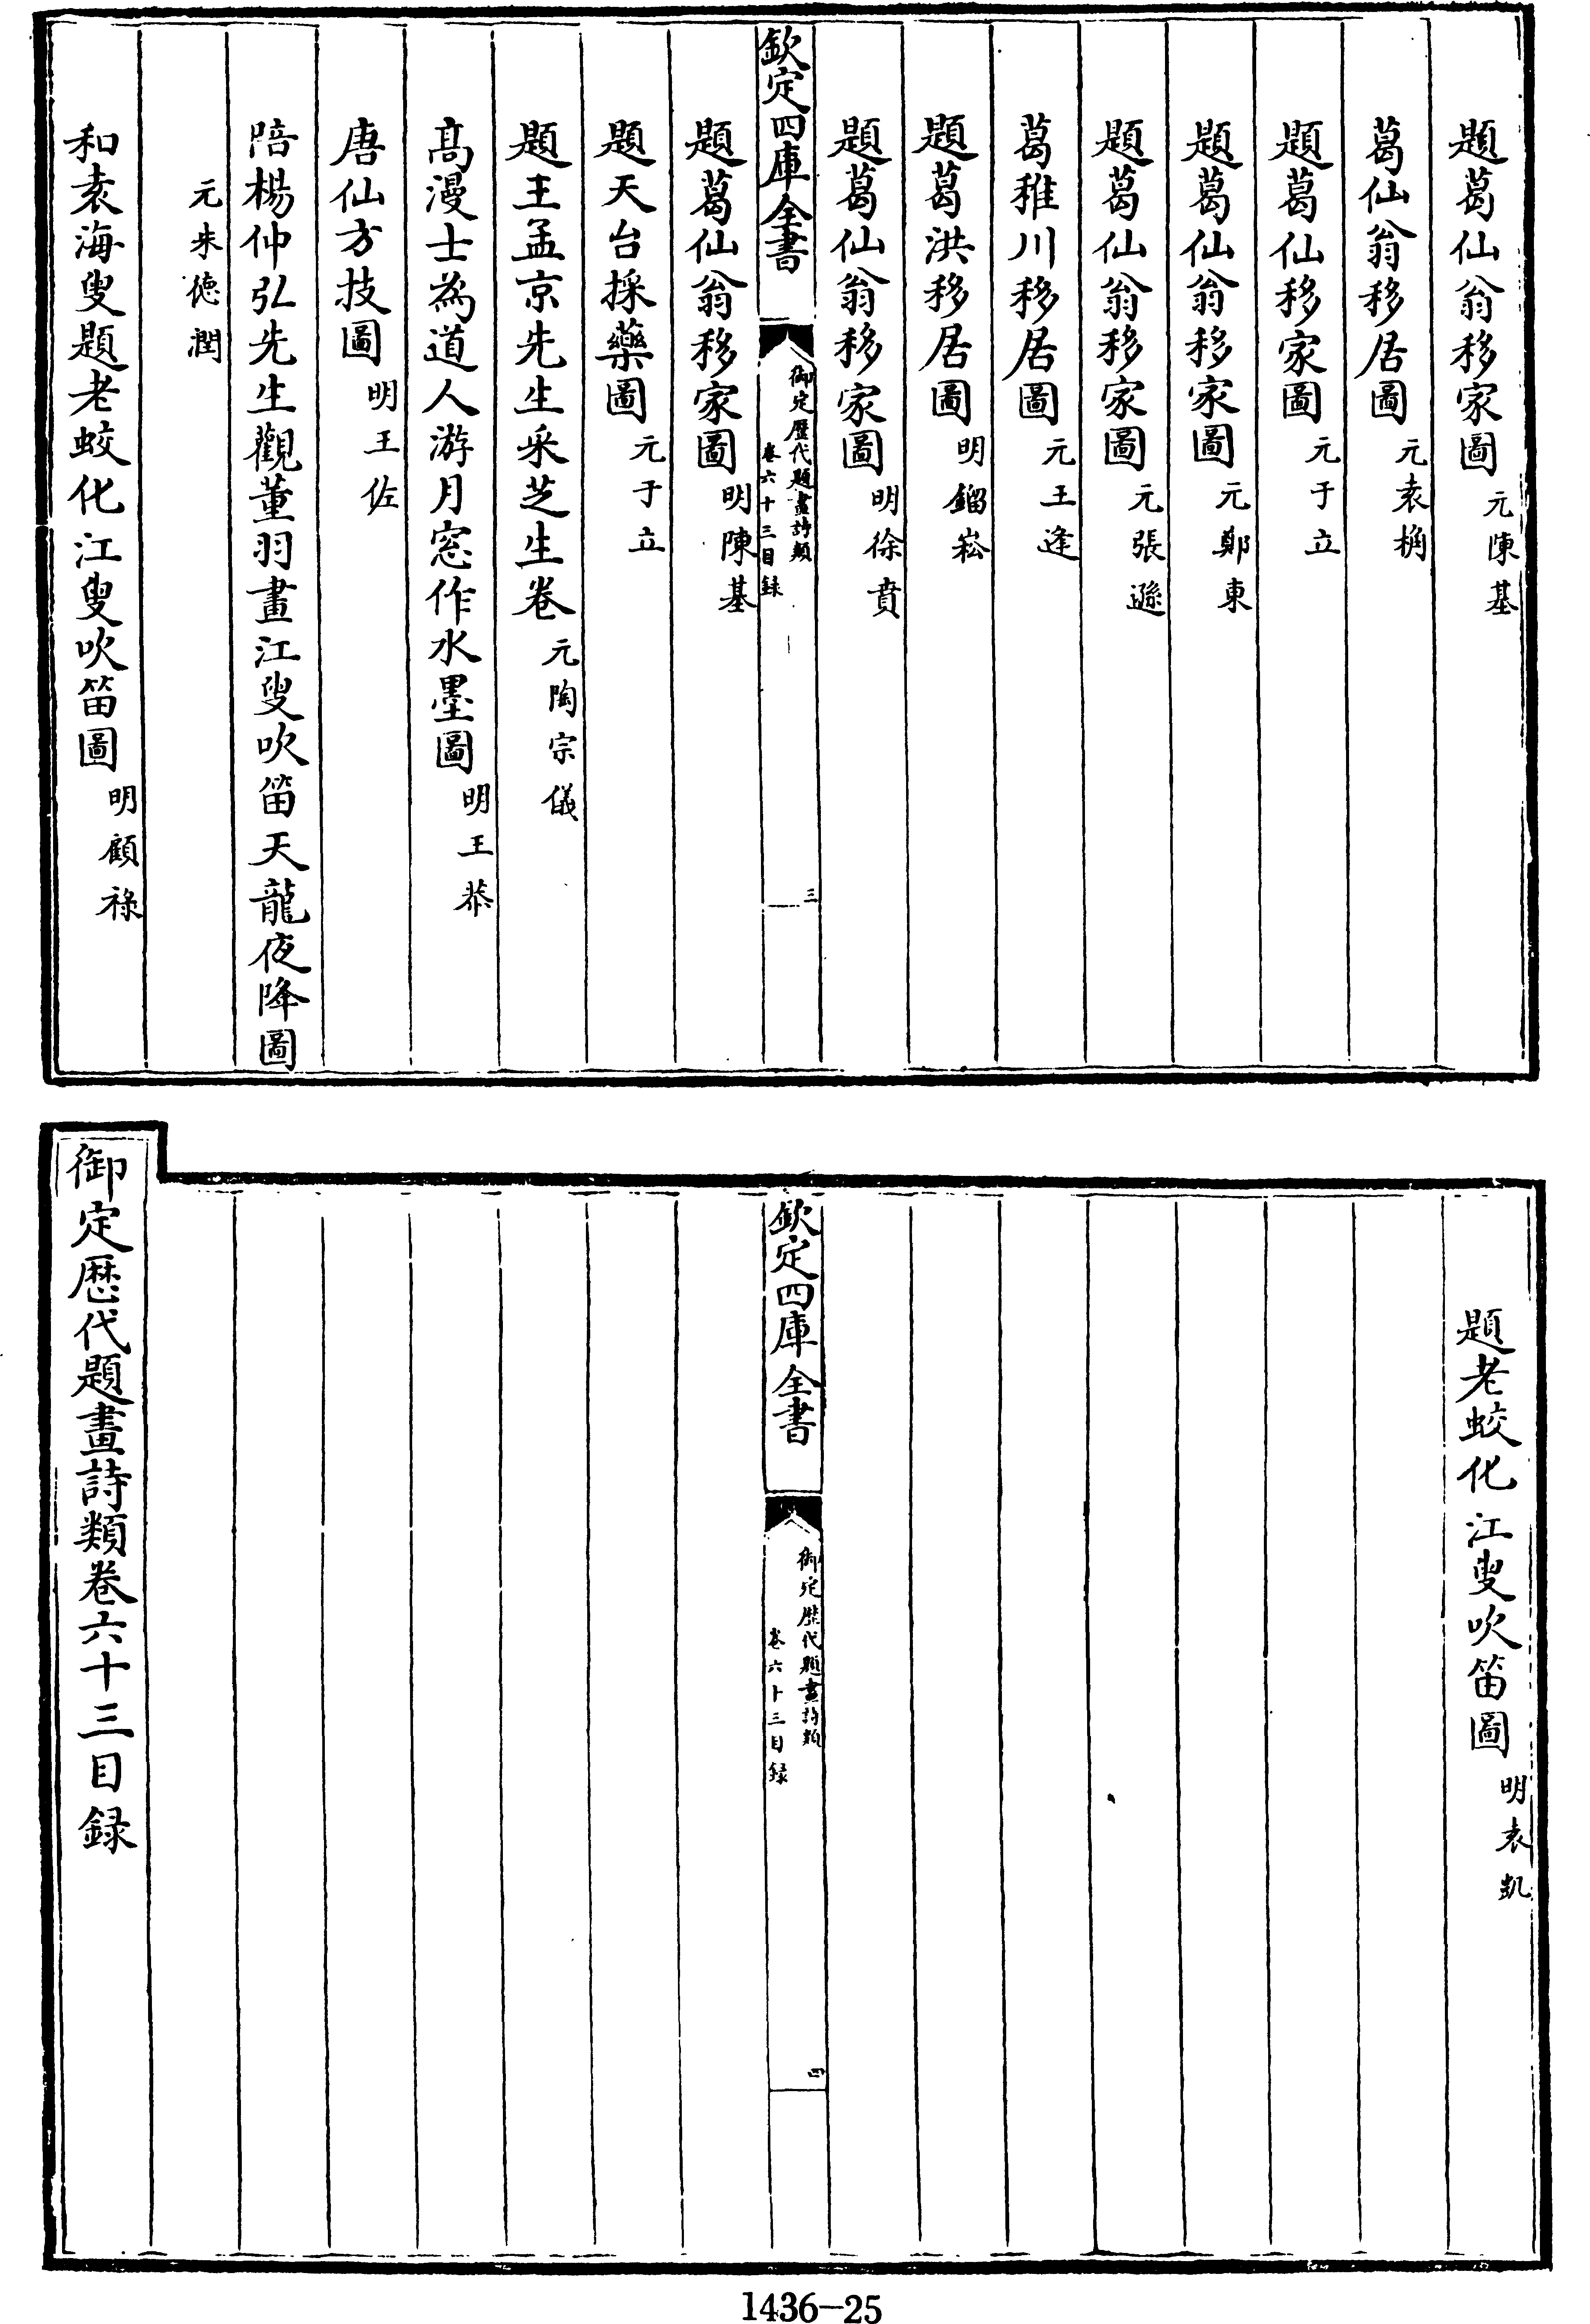 題葛仙翁移家圖 元陳基
葛仙翁移居圖 元袁桷
題葛仙移家圖 元于立
題葛仙翁移家圖 元鄭東
題葛仙翁移家圖 元張遜
葛稚川移居圖 元王逢
題葛洪移居圖 明鎦崧
題葛仙翁移家圖 明徐賁
欽定四庫全書
御定歷代題畫詩類
卷六十三目録
三
題葛仙翁移家圖 明陳基
題天台採藥圖 元于立
題王孟京先生采芝生卷 元陶宗儀
高漫士為道人游月窓作水墨圖 明王恭
唐仙方技圖 明王佐
陪楊仲弘先生觀董羽畫江叟吹笛天龍夜降圖
元朱徳潤
和袁海叟題老蛟化江叟吹笛圖 明顧祿
題老蛟化江叟吹笛圖 明袁凱
欽定四庫全書
御定歷代題畫詩類
卷六十三目録
四
御定歷代題畫詩類卷六十三目録
1436-25